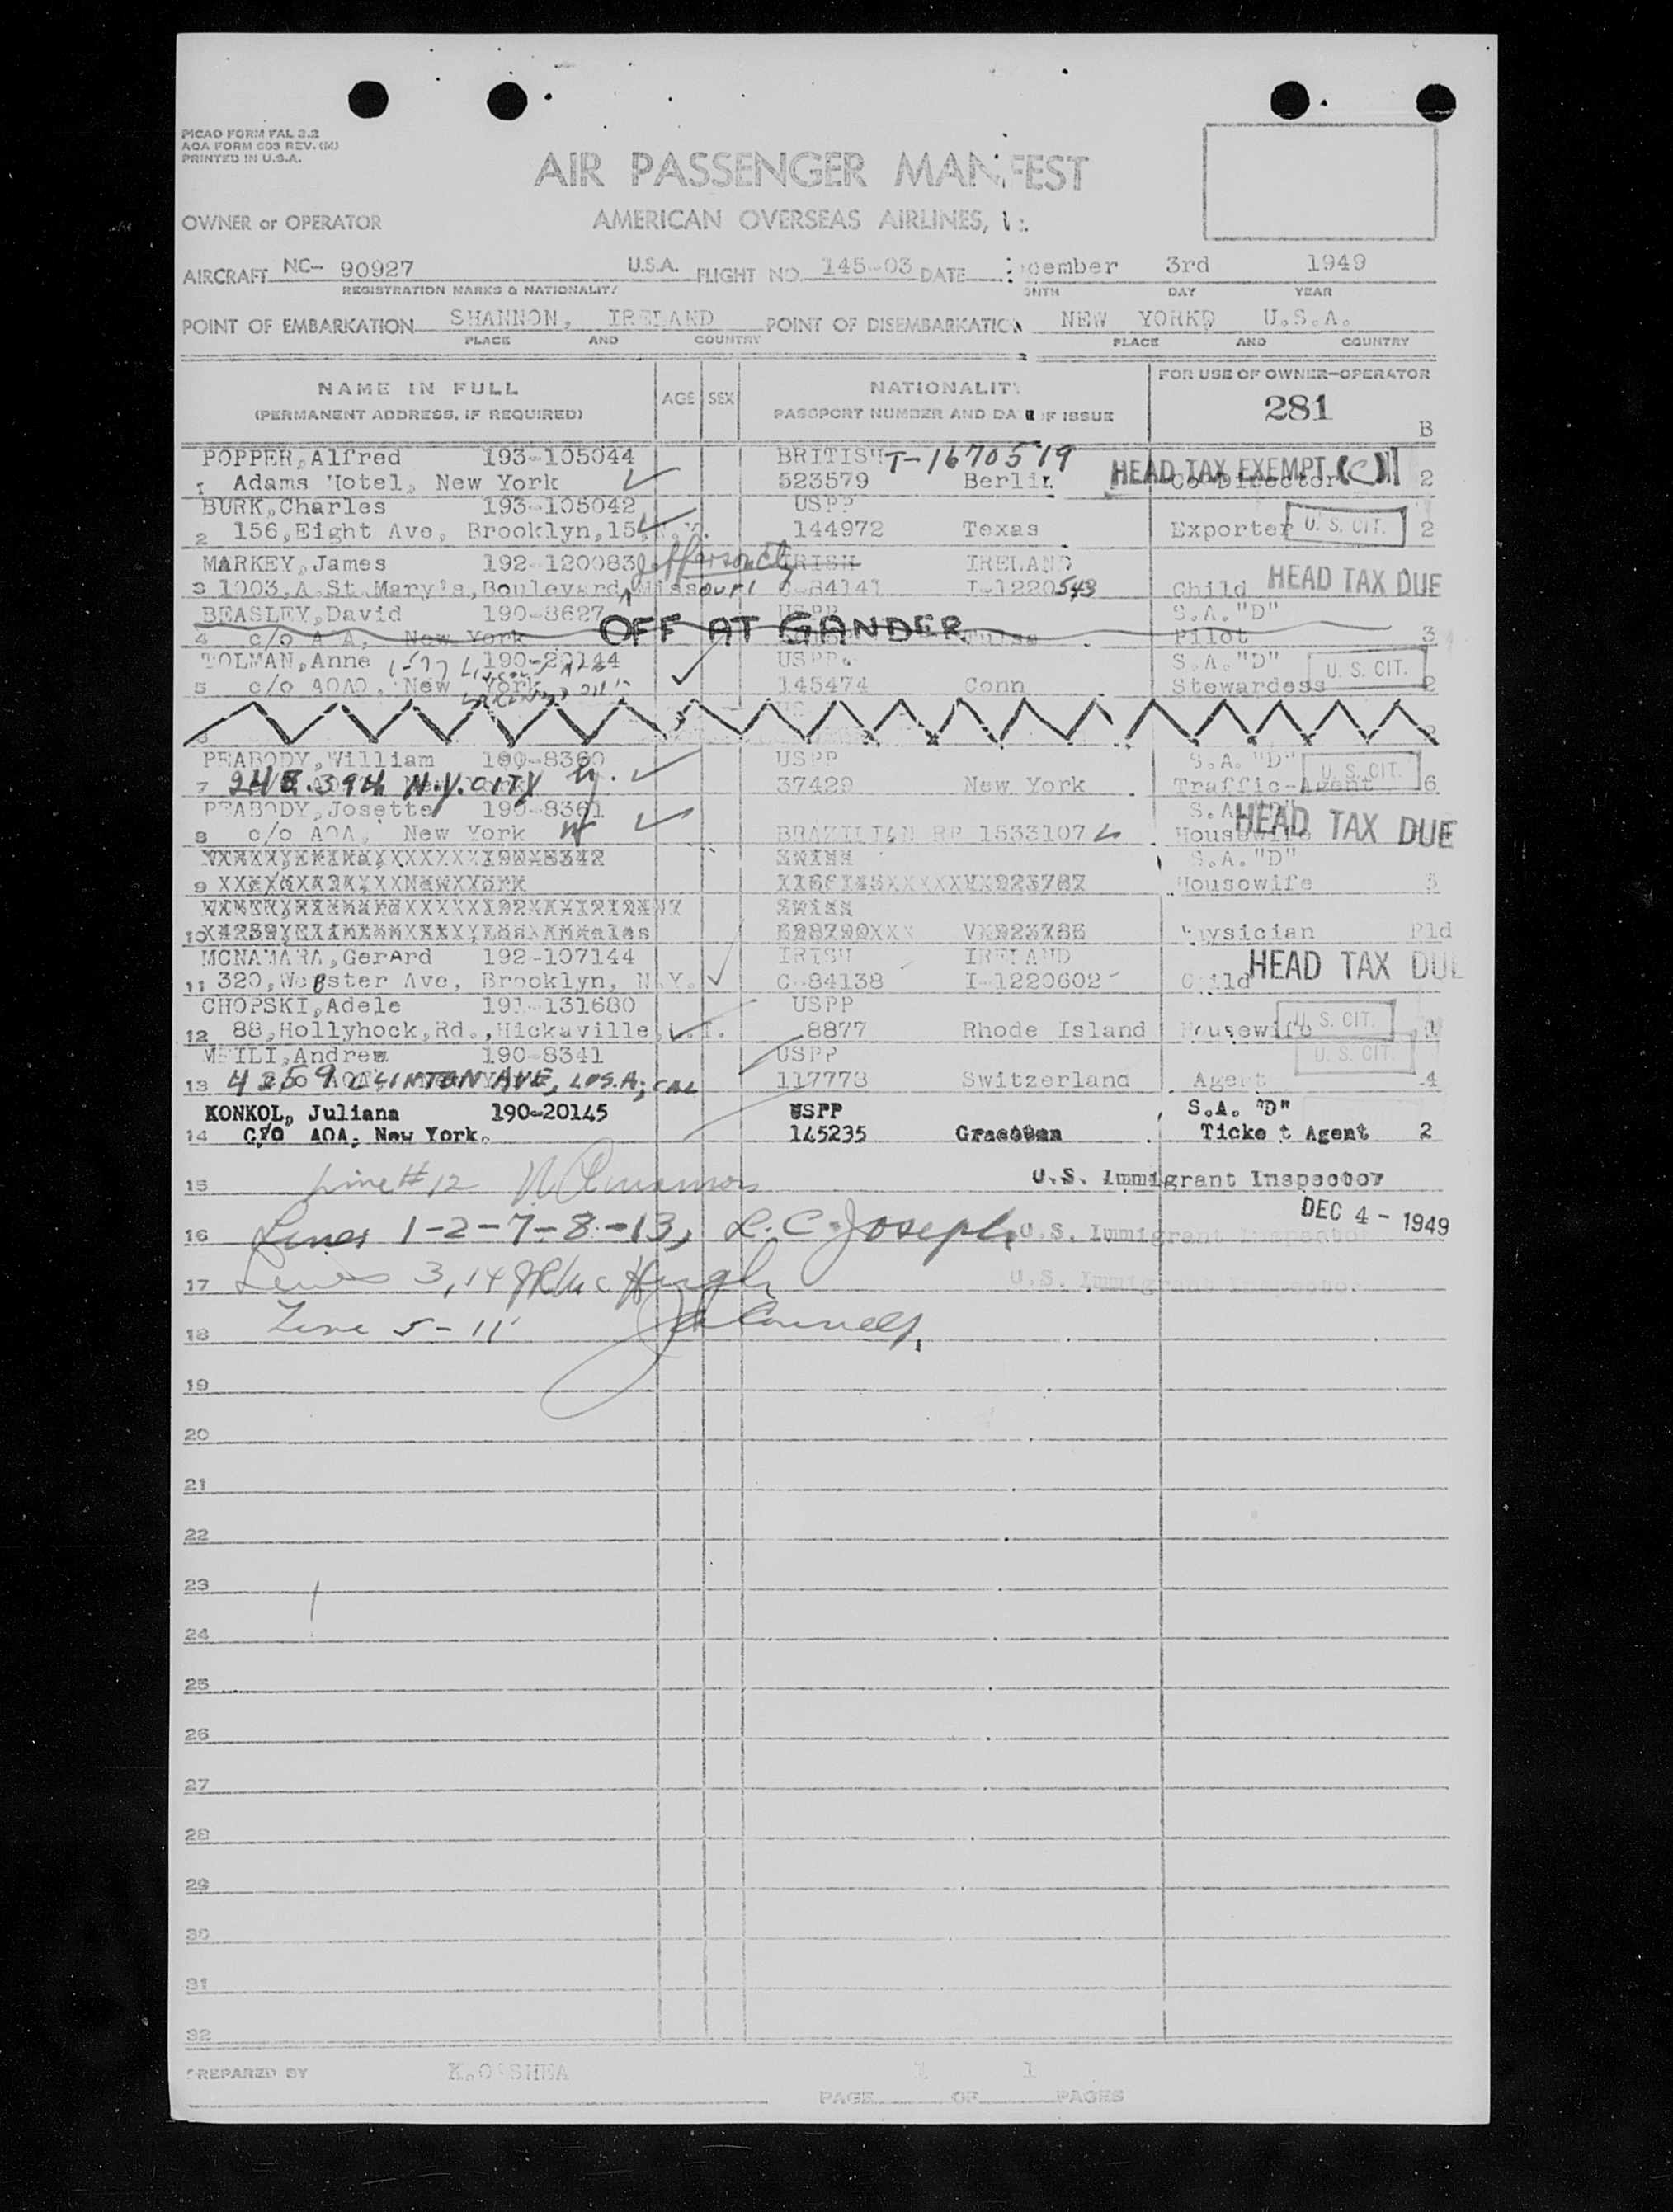 PICAO FORM FAL 3.2
AOA FORM 603 REV. (M)
PRINTED IN U.S.A.
AIR PASSENGER MANIFEST
OWNER or OPERATOR AMERICAN OVERSEAS AIRLINES,
AIRCRAFT NC- 90927 U.S.A. FLIGHT NO. 145-03 DATE cember 3rd 1949
REGISTRATION MARKS & NATIONALITY ONTH DAY YEAR
POINT OF EMBARKATION SHANNON, IRELAND POINT OF DISEMBARKATION NEW YORK, U.S.A.
PLACE AND COUNTRY PLACE AND COUNTRY
NAME IN FULL AGE SEX NATIONALITY FOR USE OF OWNER-OPERATOR
(PERMANENT ADDRESS, IF REQUIRED) PASSPORT NUMBER AND DATE OF ISSUE 281
B
POPPER, Alfred 193-105044 BRITISH T-1670519
1 Adams Hotel, New York 523579 Berlin Co-Director HEAD TAX EXEMPT (C) 2
BURK, Charles 193-105042 USPP
2 156, Eight Ave, Brooklyn, 15, N.Y. 144972 Texas Exporter U. S. CIT. 2
MARKEY, James 192-120083 Jefferson City IRISH IRELAND
3 1003, A.St.Mary's, Boulevard, Missouri C-84141 I-1220543 Child HEAD TAX DUE
BEASLEY, David 190-8627 USPP S.A."D"
4 c/o A A, New York OFF AT GANDER Tulsa Pilot 3
TOLMAN, Anne 190-20144 USPP. S.A."D"
5 c/o AOA, New York 145474 Conn Stewardess U. S. CIT. 2
PEABODY, William 190-8360 USPP S.A."D"
7 N.Y.CITY 37429 New York Traffic-Agent U. S. CIT. 6
PEABODY, Josette 190-8361 S.A."D"
8 c/o AOA, New York BRAZILIAN RP 1533107 Housewife HEAD TAX DUE
S.A."D"
9 Housewife 3
10 Physician
MCNAMARA, Gerard 192-107144 IRISH IRELAND
11 320, Webster Ave, Brooklyn, N.Y. C-84138 I-1220602 Child HEAD TAX DUE
CHOPSKI, Adele 191-131680 USPP
12 88, Hollyhock, Rd., Hicksville, L.I. 8877 Rhode Island Housewife U. S. CIT. 1
MEILI, Andrew 190-8341 USPP U. S. CIT.
13 4259 CLINTON AVE, LOS.A; CAL 117778 Switzerland Agent 4
KONKOL, Juliana 190-20145 USPP S.A. "D"
14 C/O AOA, New York. 145235 Ticket Agent 2
15 Line # 12 U.S. Immigrant Inspector
DEC 4 - 1949
16 Lines 1-2-7-8-13, L.C. Joseph U.S. Immigrant Inspector
17 Lines 3,14 McHugh U.S. Immigrant Inspector
18 Line 5-11
19
20
21
22
23
24
25
26
27
28
29
30
31
32
PREPARED BY K.O'SHEA
PAGE 1 OF 1 PAGES